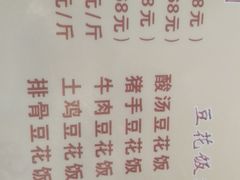 8元）
68元）
8元）
元/斤
元/斤
豆花饭
酸汤豆花饭
猪手豆花饭
牛肉豆花饭
土鸡豆花饭
排骨豆花饭